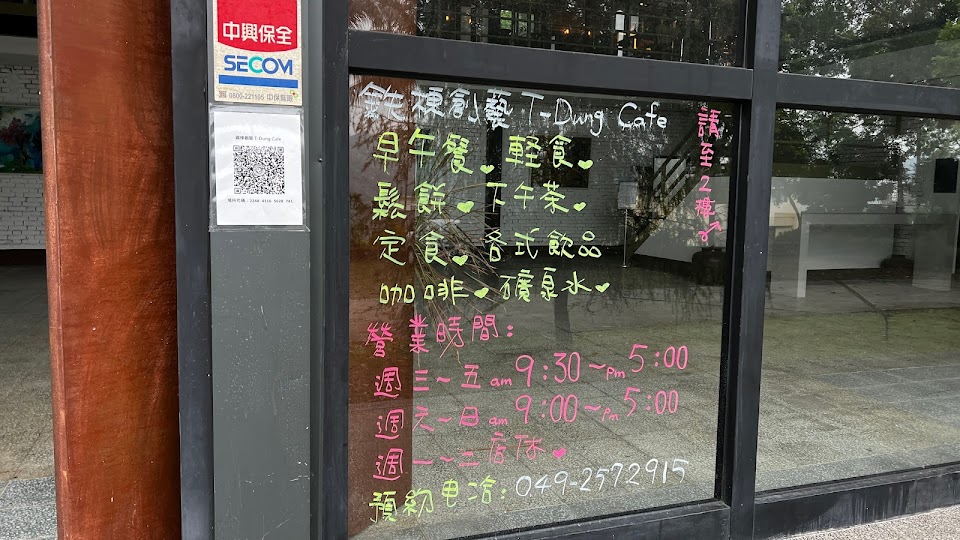 中興保全
SECOM
0800-221195 中保服務
T-Dung Cafe
鈺棟創藝 T-Dung Cafe
早午餐♥輕食♥
鬆餅♥下午茶♥
定食♥各式飲品
咖啡♥礦泉水♥
營業時間:
週三~五 am 9:30~pm 5:00
週六~日 am 9:00~pm 5:00
週一~二店休♥
預約電洽:049-2572915
請至2樓